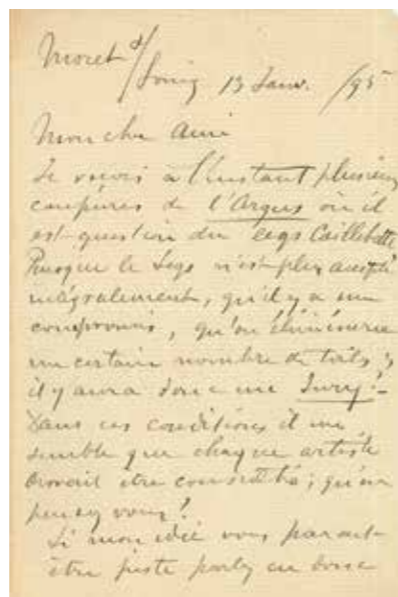 Moret s/
Loing 13 Janv. /95
Mon cher Ami
Je reçois à l'instant plusieurs
coupures de l'Argus où il
est question du legs Caillebotte
Puisque le Legs n'est plus accepté
intégralement, qu'il y a un
compromis, qu'on éliminerie
un certain nombre de toiles,
il y aura donc une Jury!
Dans ces conditions il me
semble que chaque artiste
devrait être consulté; qu'en
pensez vous?
Si mon idée vous parait
être juste parlez en donc